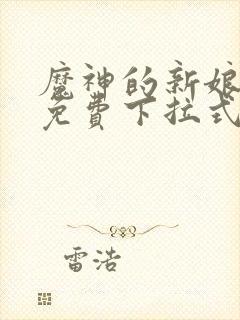 魔神的新娘
免費下拉式
雷浩